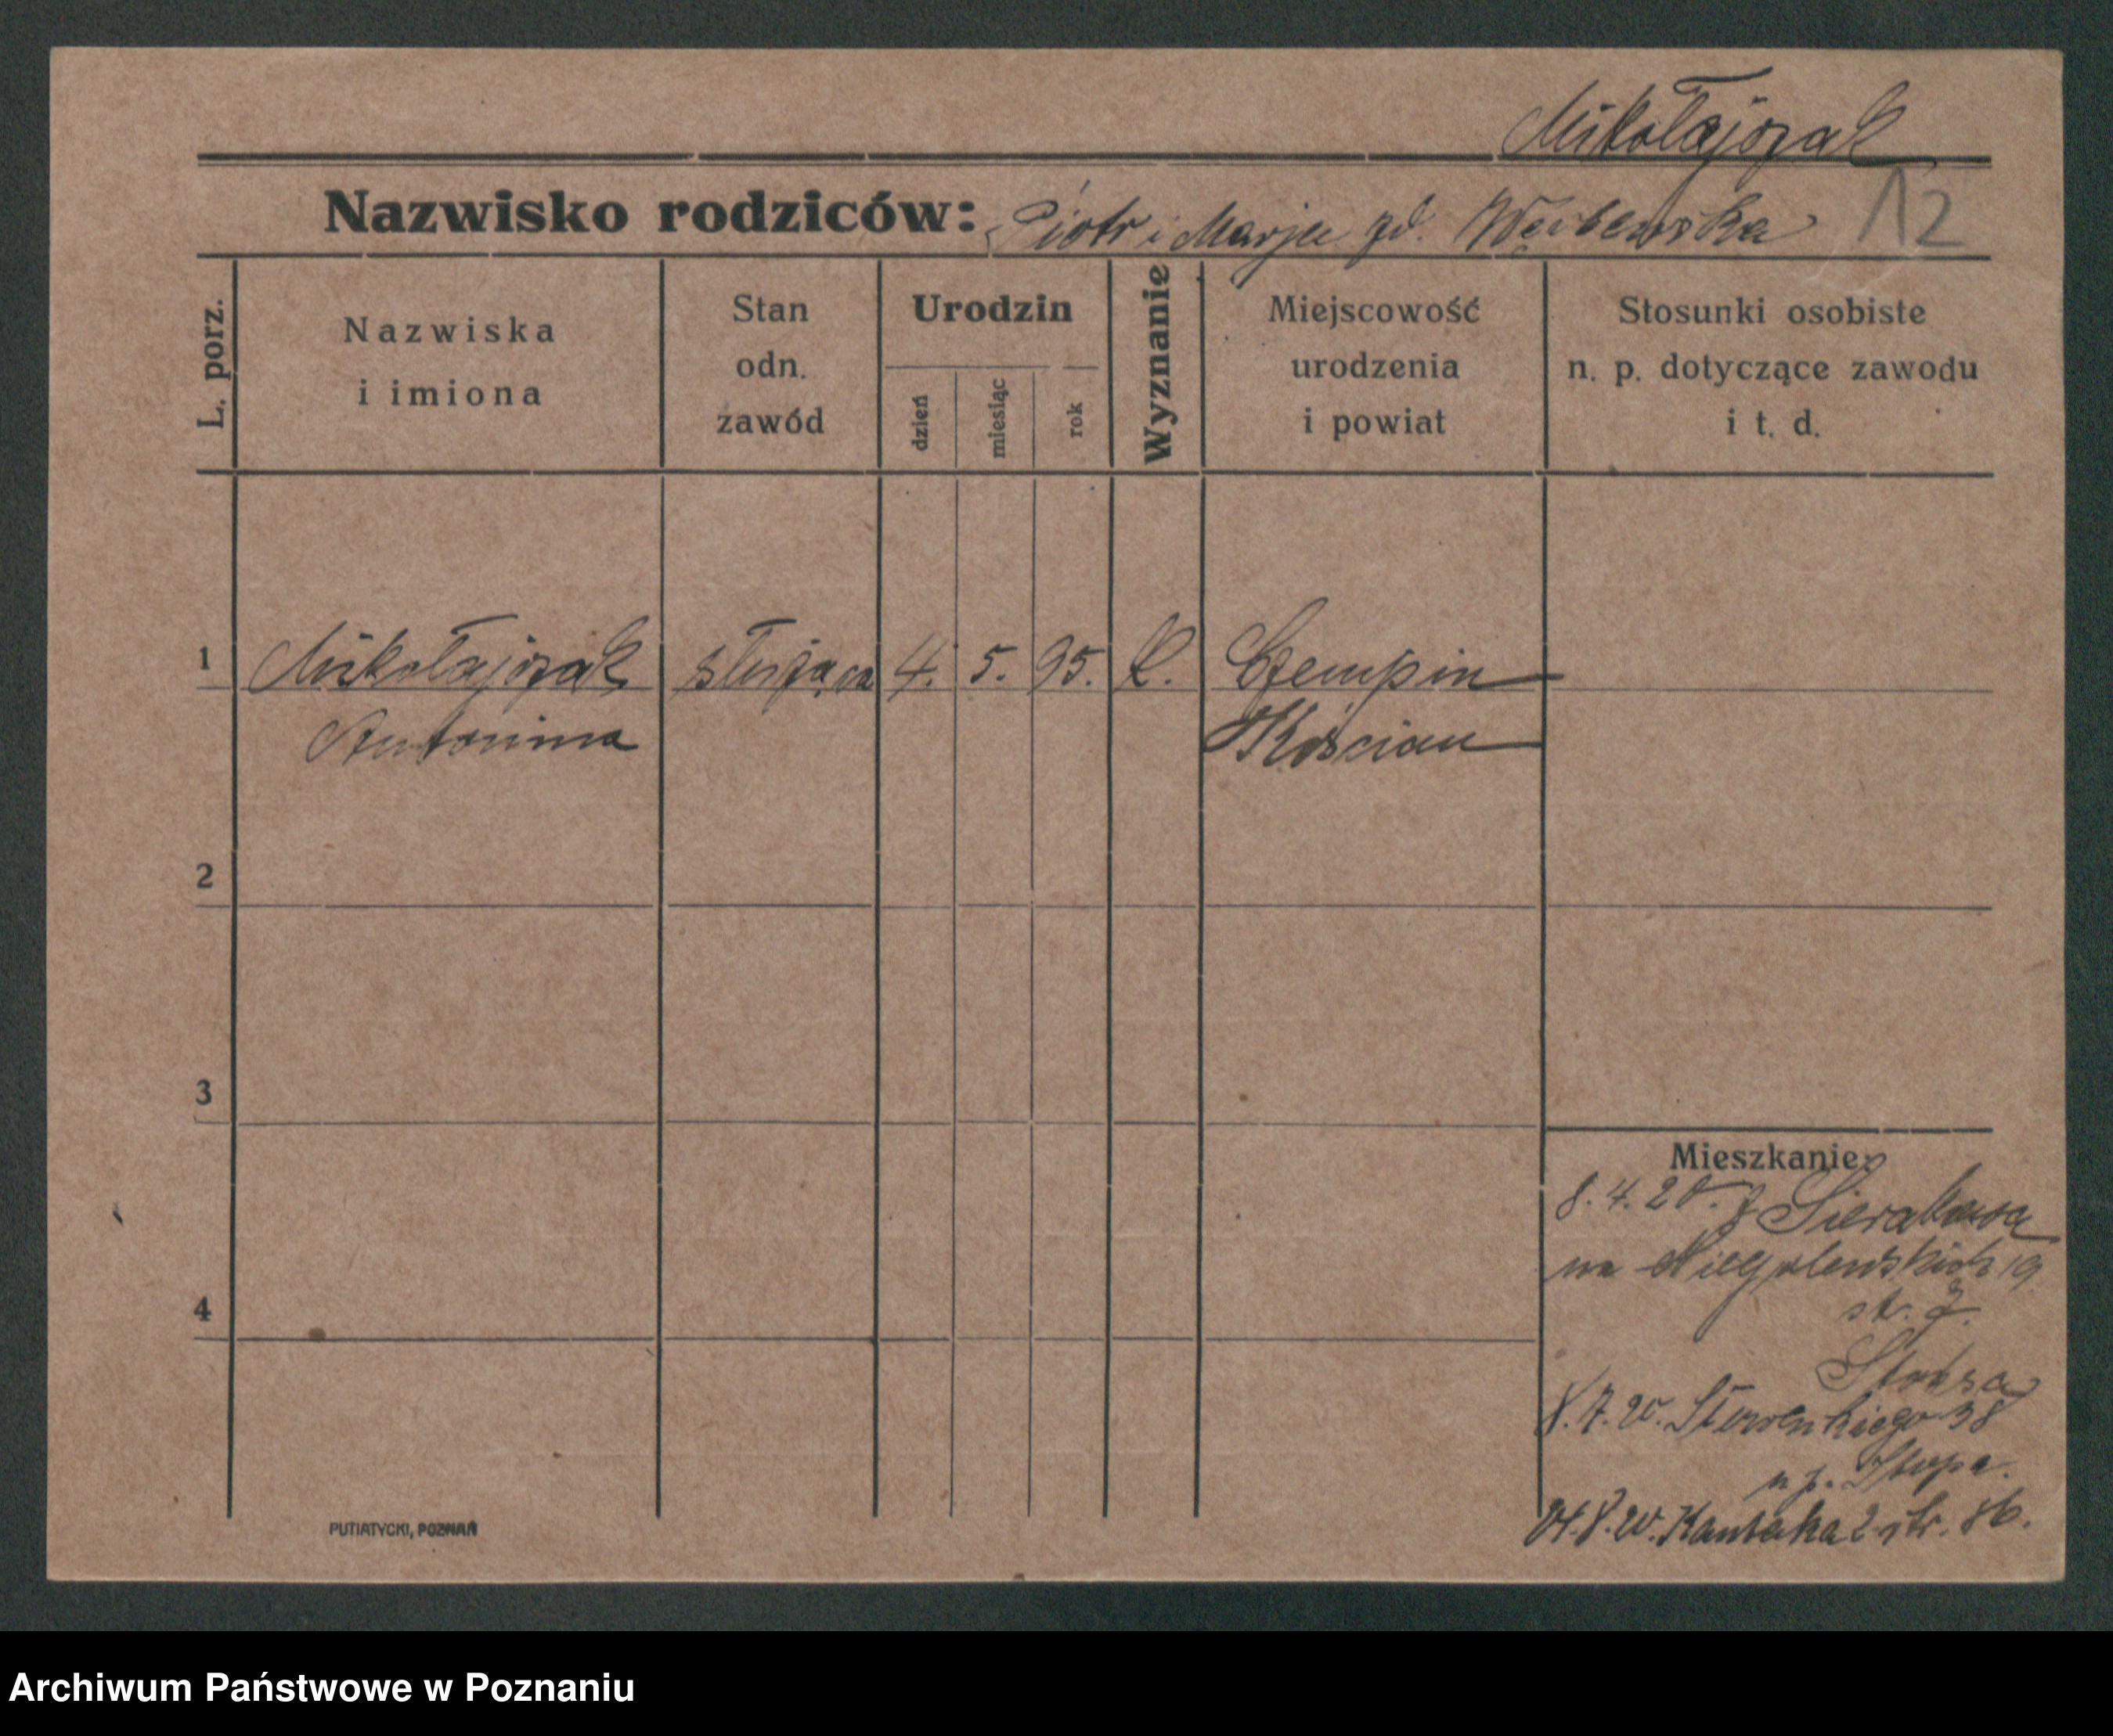 Mikołajczak
Nazwisko rodziców: Piotr i Marja zd. Werblewska
12
L. porz.
Nazwiska
i imiona
Stan
odn.
zawód
Urodzin
dzień
miesiąc
rok
Wyznanie
Miejscowość
urodzenia
i powiat
Stosunki osobiste
n. p. dotyczące zawodu
i t. d.
1 Mikołajczak służąca 4. 5. 95. k. Czempin
Antonina Kościan
2
3
4
Mieszkanie:
8. 4. 20. z Sierakowa
na Niegolewskich 19
8. 7. 20. 38
n p. Stupa.
8. 20. Kantaka 2 ptr. 86.
PUTIATYCKI, POZNAŃ
Archiwum Państwowe w Poznaniu